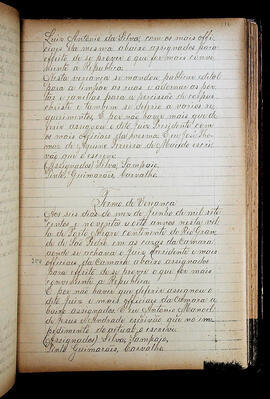 Luiz Antonio da Silva, com os mais offi-
ciaes da mesma abaixo assignados para
effeito de se prover o que for mais conve-
niente a Republica
Nesta vereança se mandou publicar edital
para se limpar as ruas e adornar as por-
tas e janellas para a procissão de Corpus
Christe e tambem se deferio a varios re-
querimentos. E por não haver mais que de-
ferir assignou o dito Juiz Presidente com
os mais officiaes da mesma. Eu
de escri-
vão que o escrevi.
(Assignados) Silva, Sampaio,
Pinto, Guimarães, Carvalho.
Termo de Vereança
Aos seis dias do mez de Junho de mil sete
centos e noventa e oito annos nesta vil-
la de Porto Alegre continente do Rio Gran-
de de São Pedro em as casas da Camara
aonde se achava o Juiz Presidente e mais
officiaes da Camara abaixo assignados
Para effeito de se prover o que for mais
conveniente a Republica
E por não haver que deferir assignou o
dito Juiz e mais officiaes da Camara a
baixo assignados. E eu Antonio Manoel
de Jesus e Andrade escrivão que no im-
pedimento do actual o escrevi
(Assignados) Silva, Sampaio,
Pinto, Guimarães, Carvalho